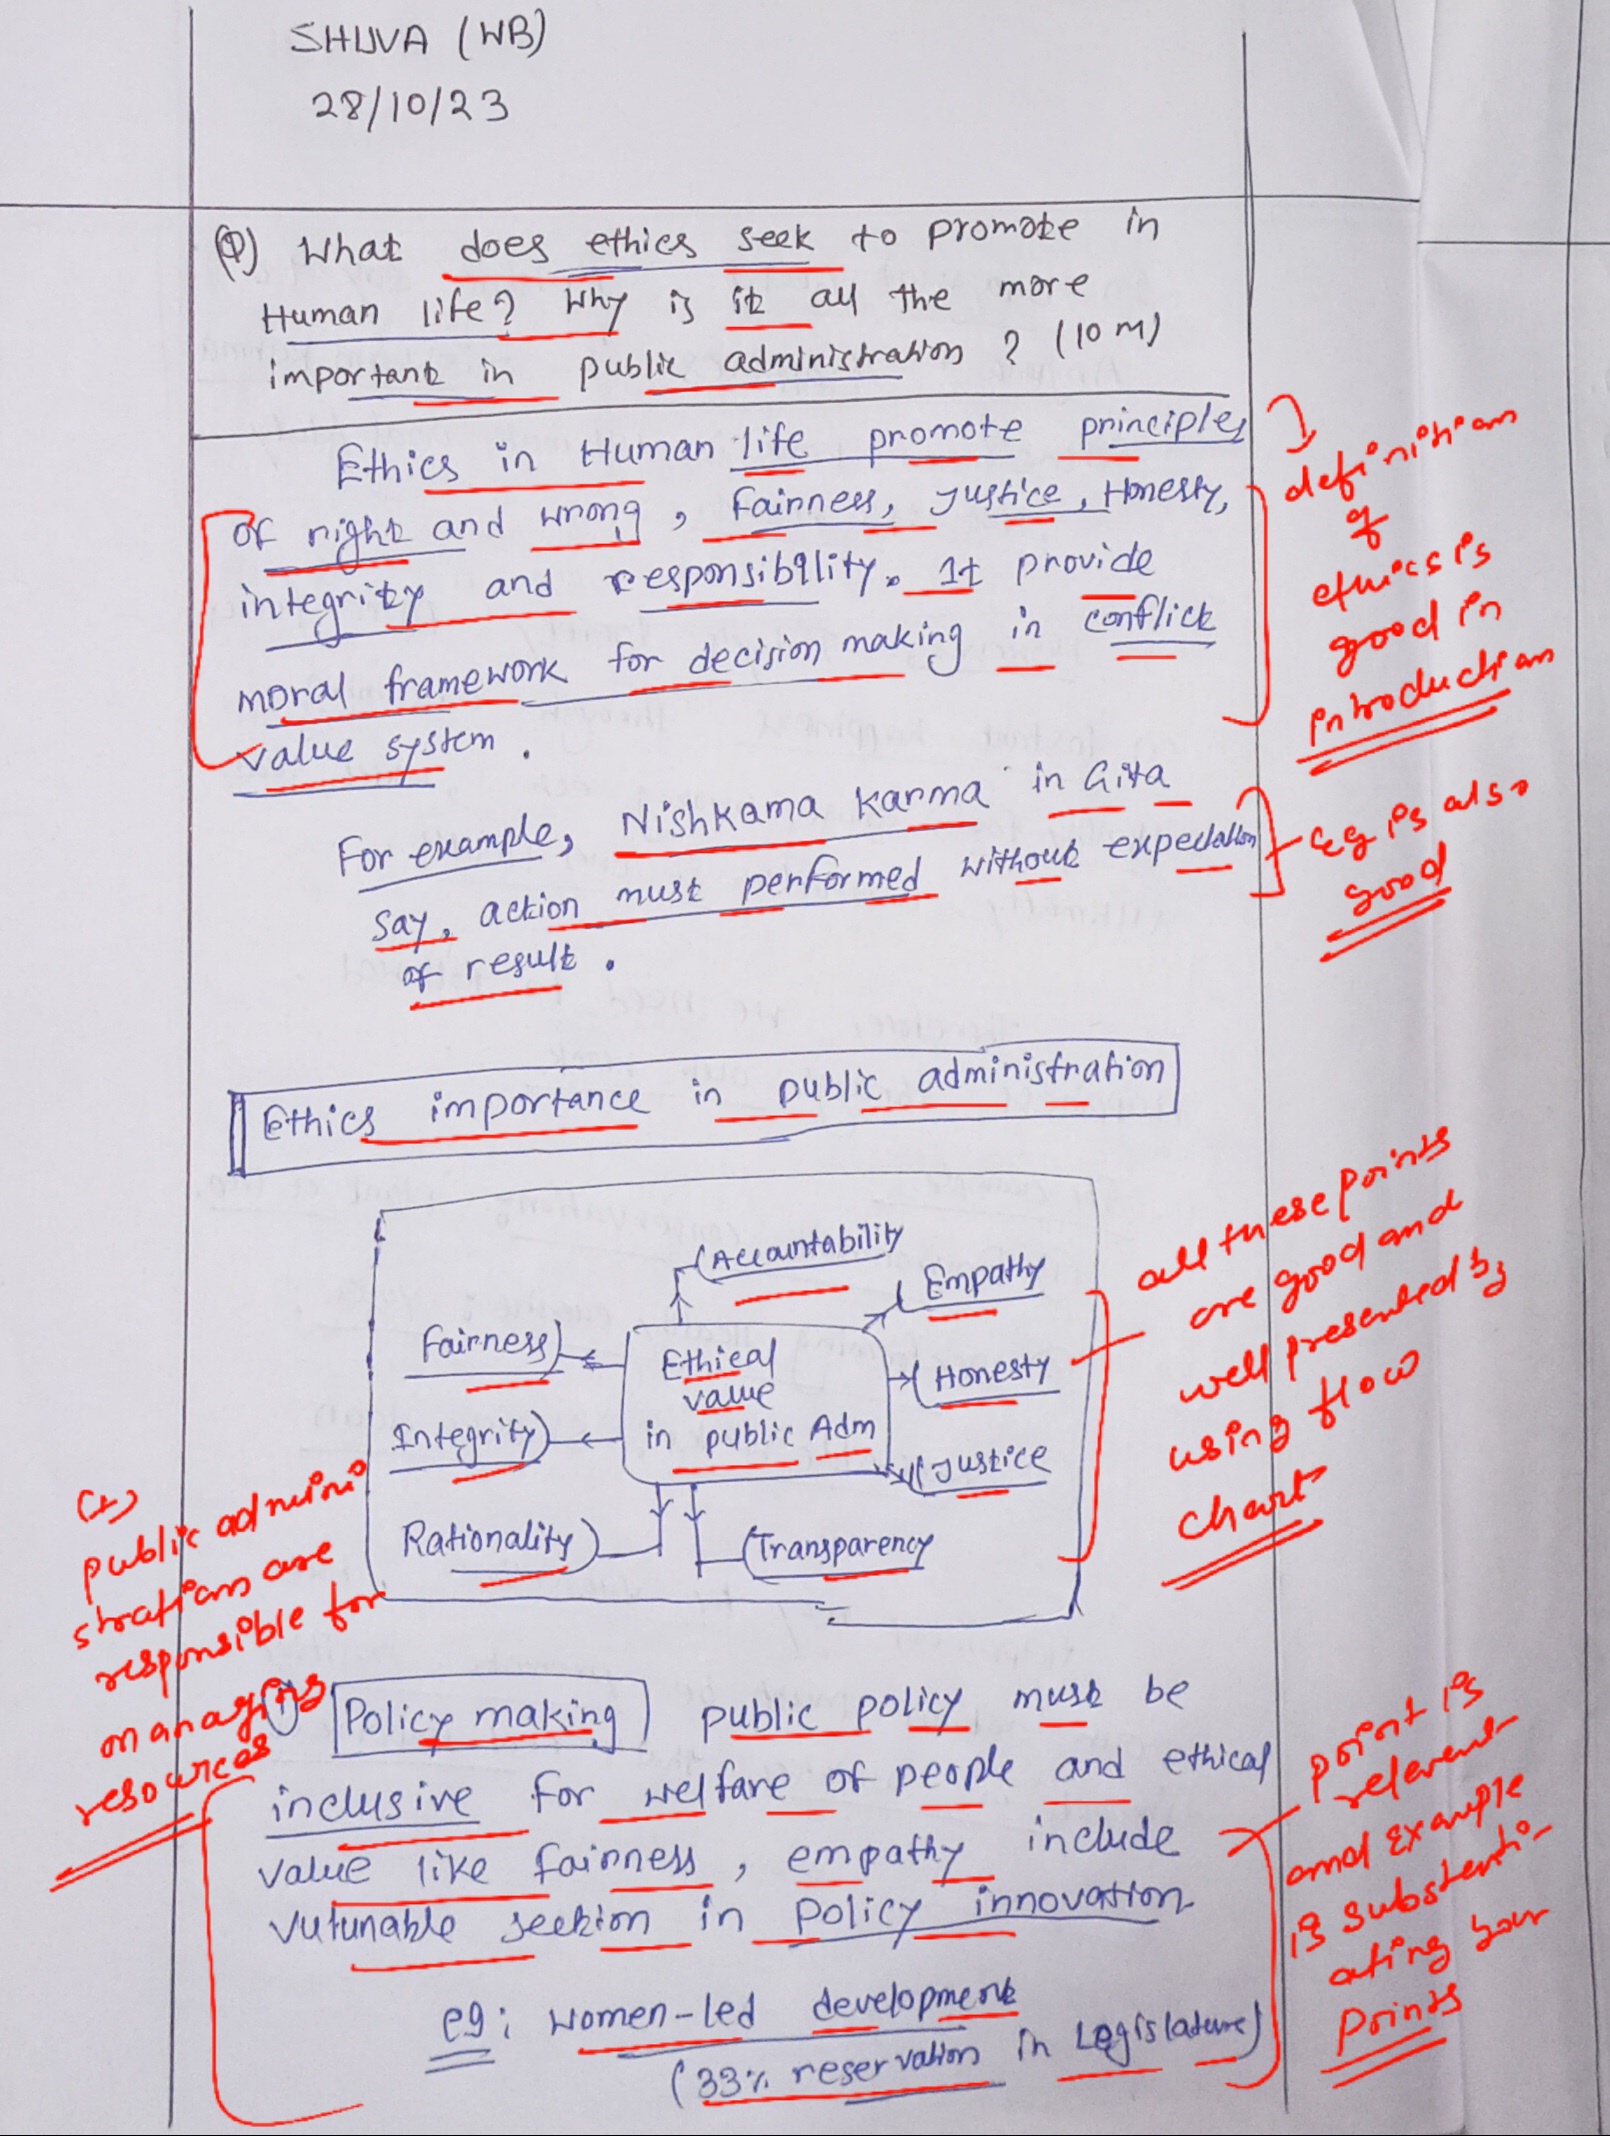 SHUVA (WB)
28/10/23
(Q) What does ethics seek to promote in
Human life? Why is it all the more
important in public administration ? (10 M)
Ethics in Human life promote principles
of right and wrong, fairness, Justice, Honesty,
integrity and responsibility. It provide
moral framework for decision making in conflick
value system.
definition
of
ethics is
good in
introduction
For example, Nishkama Karma in Gita
say, action must performed without expectation
of result.
Eg is also
good
Ethics importance in public administration
Accountability
Empathy
Fairness
Honesty
Ethical
value
in public Adm
Integrity
Justice
Rationality
Transparency
all these points
are good and
well presented by
using flow
chart
(+)
public admini
stration are
responsible for
managing
resources
① Policy making public policy must be
inclusive for welfare of people and ethical
value like fairness, empathy include
vulunable section in policy innovation.
eg: women-led development
(33% reservation in Legislature)
point is
relevant
and Example
is substenti
ating your
points